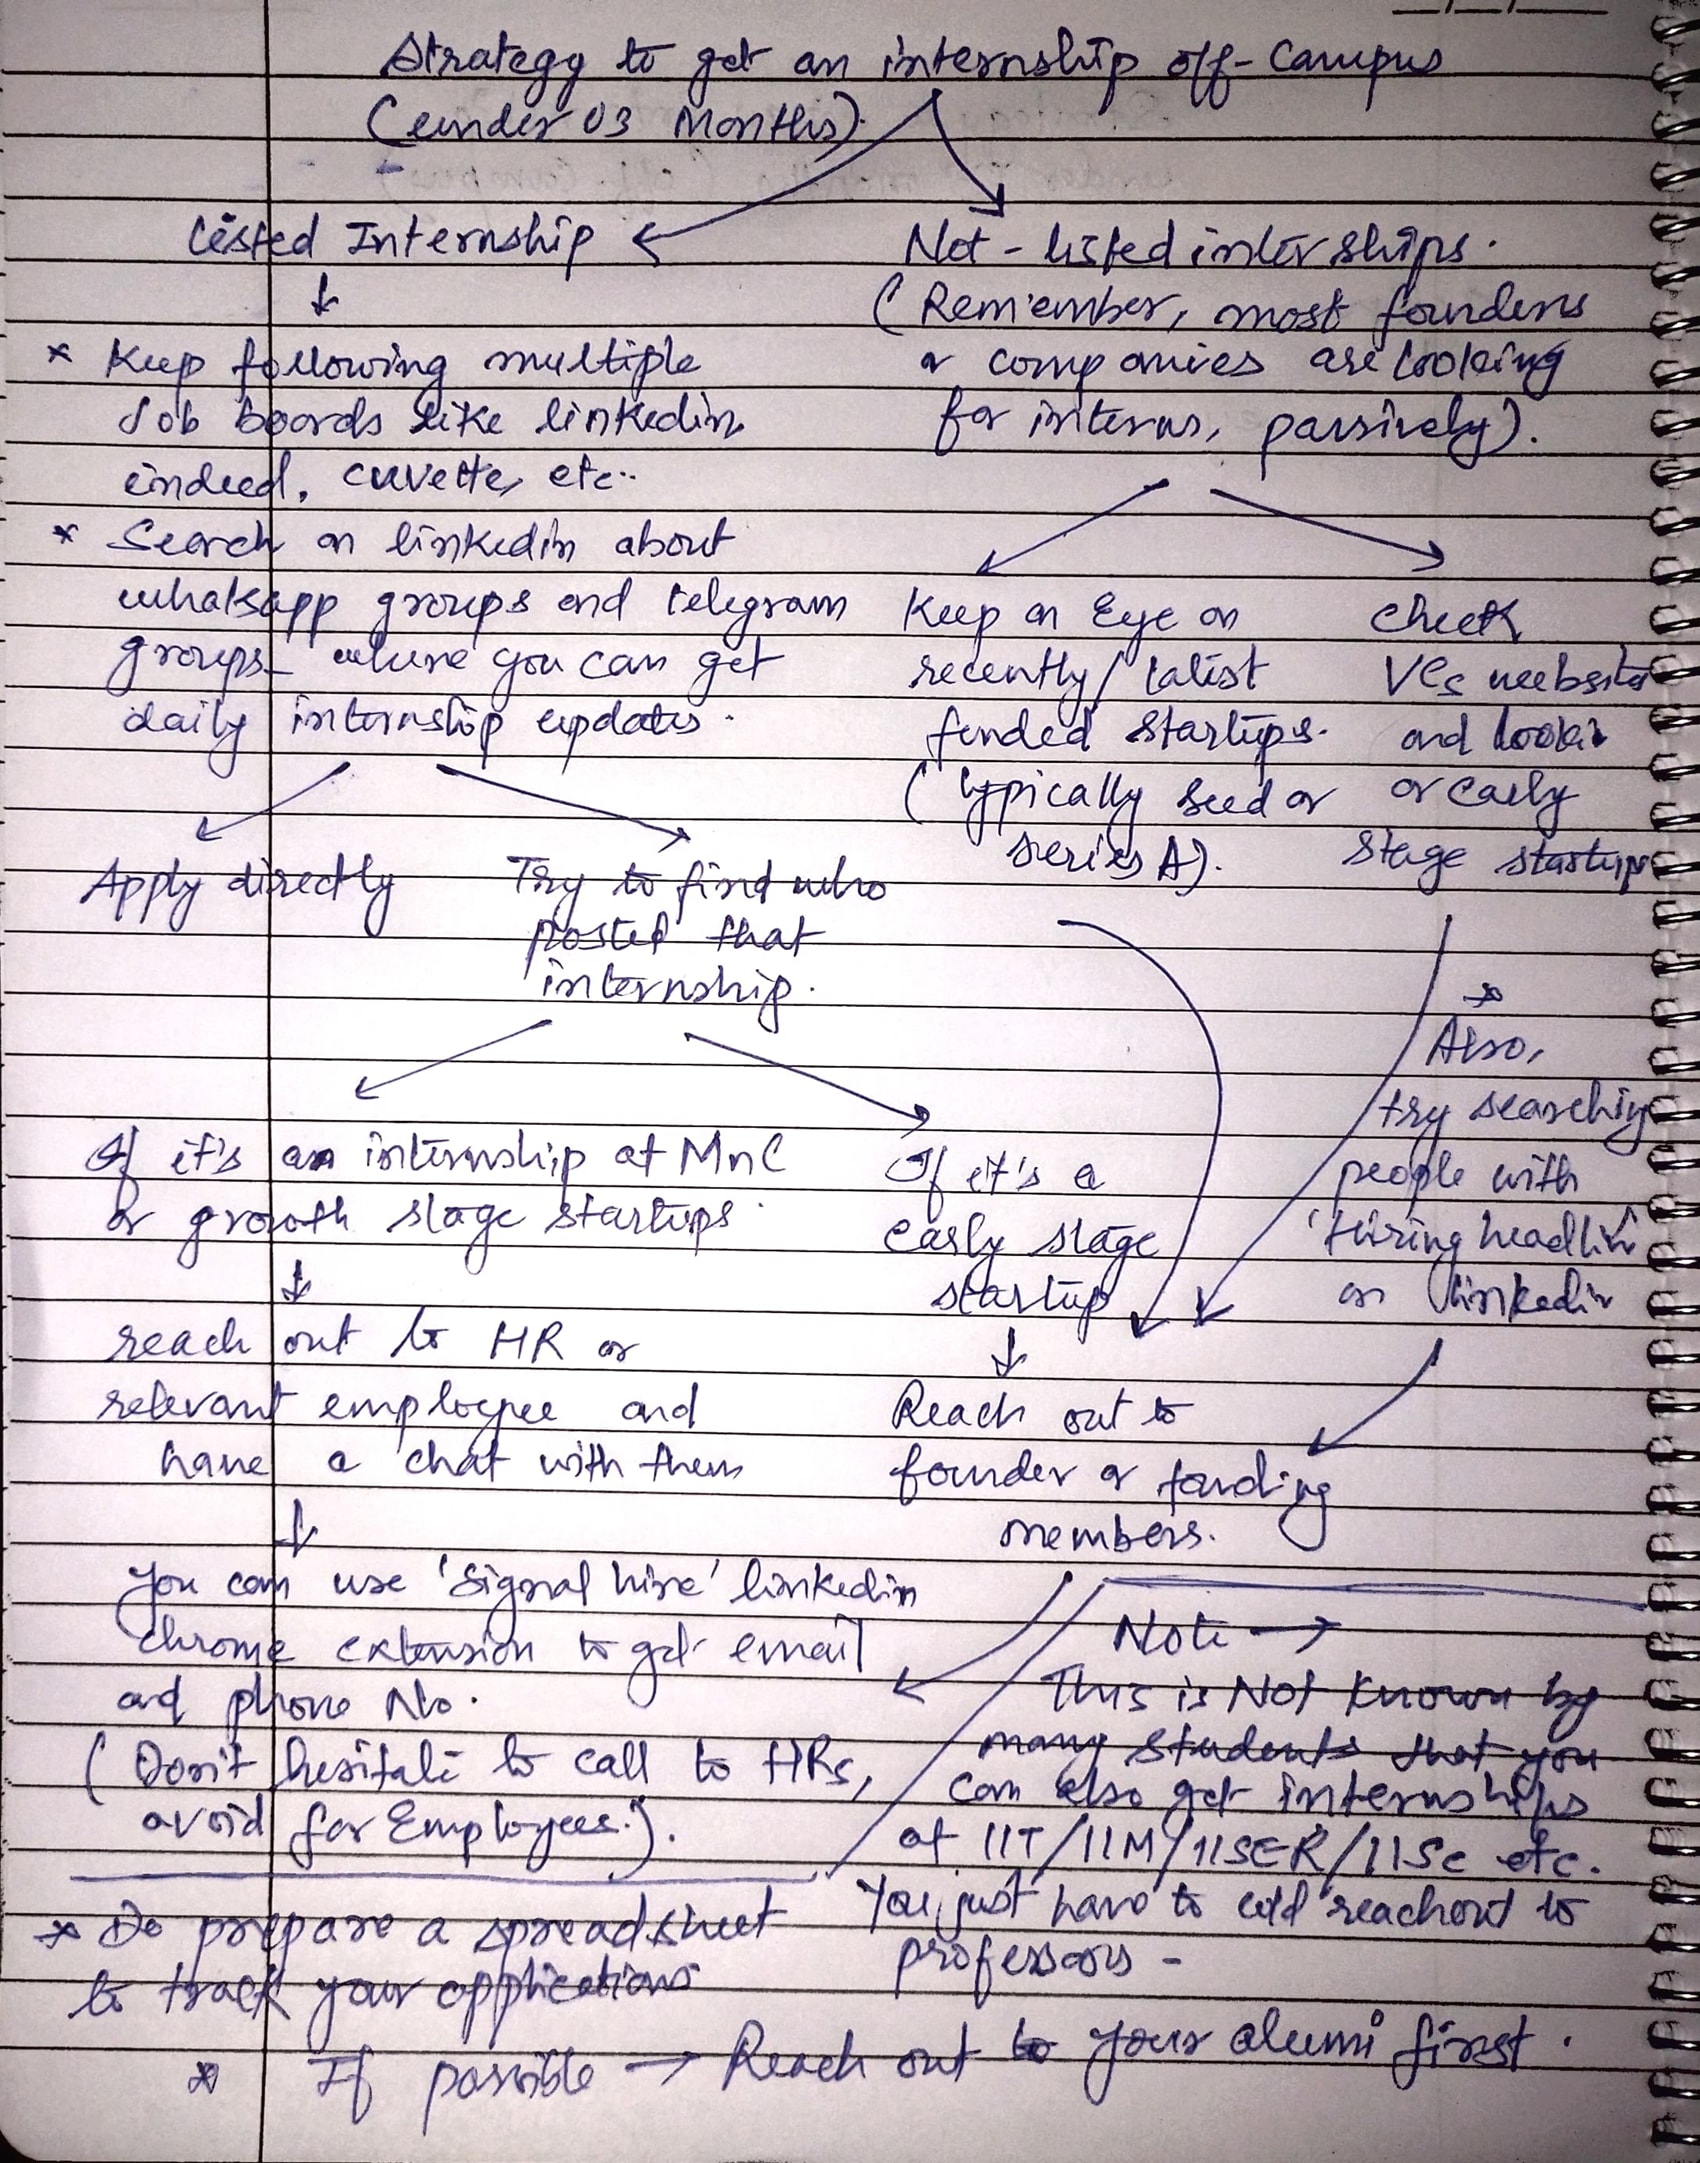 Strategy to get an internship off-campus
(under 03 Months).
Listed Internship
* Keep following multiple
Job boards like linkedin
indeed, cuvette, etc..
* Search on linkedin about
whatsapp groups and telegram
groups where you can get
daily internship updates.
Apply directly
Try to find who
posted that
internship.
If it's an internship at MnC
or growth stage startups.
reach out to HR or
relevant employee and
have a chat with them
You can use 'Signal hire' linkedin
chrome extension to get email
and phone No.
(Don't hesitate to call to HRs,
avoid for Employees.).
If it's a
early stage
startup
Reach out to
founder or founding
members.
Not-listed internships.
(Remember, most founders
or companies are looking
for interns, passively).
Keep an Eye on
recently/latest
funded startups.
(typically seed or
series A).
check
VCs websites
and look
or early
stage startups
*
Also,
try searching
people with
'Hiring headline'
on linkedin
Note →
This is Not Known by
many students that you
can also get internships
at IIT/IIM/IISER/IISc etc.
You just have to cold reachout to
professors -
* Do prepare a spreadsheet
to track your applications
* If possible → Reach out to your alumi first.